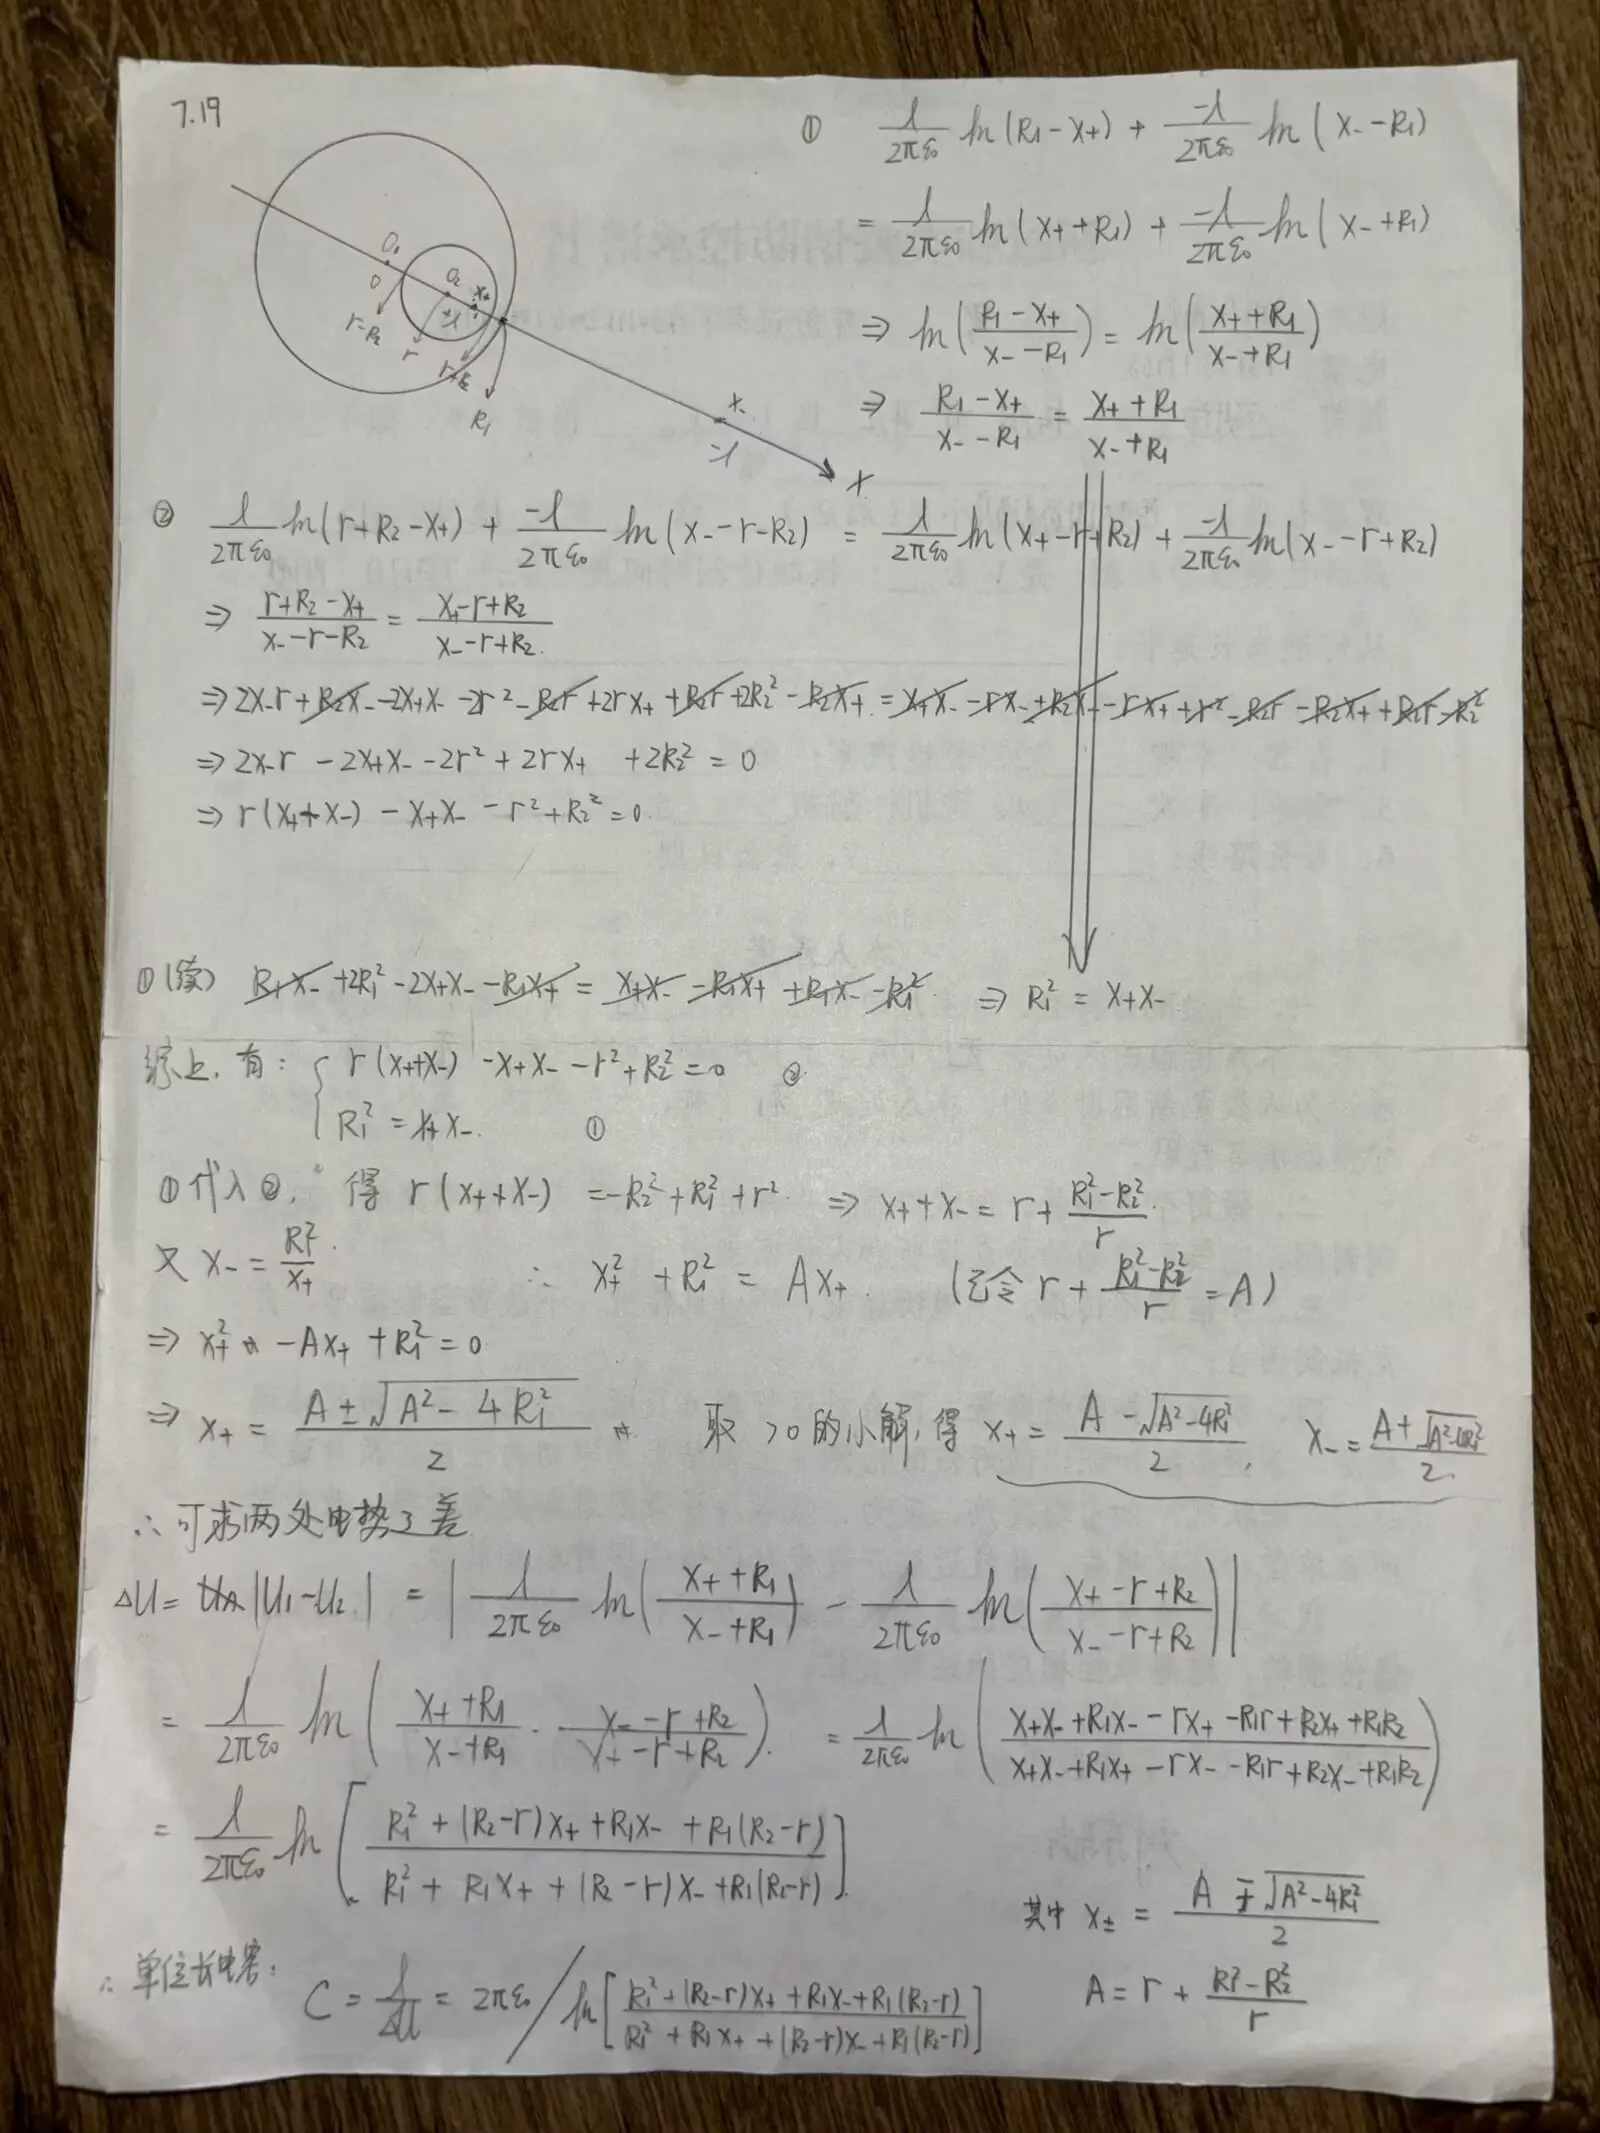 7.19
O₁
O
r-R₂
O₂
x₊
+λ
r
r+R₂
R₁
x₋
-λ
x
① λ/(2πε₀) ln(R₁-x₊) + -λ/(2πε₀) ln(x₋-R₁)
= λ/(2πε₀) ln(x₊+R₁) + -λ/(2πε₀) ln(x₋+R₁)
⇒ ln((R₁-x₊)/(x₋-R₁)) = ln((x₊+R₁)/(x₋+R₁))
⇒ (R₁-x₊)/(x₋-R₁) = (x₊+R₁)/(x₋+R₁)
② λ/(2πε₀) ln(r+R₂-x₊) + -λ/(2πε₀) ln(x₋-r-R₂) = λ/(2πε₀) ln(x₊-r+R₂) + -λ/(2πε₀) ln(x₋-r+R₂)
⇒ (r+R₂-x₊)/(x₋-r-R₂) = (x₊-r+R₂)/(x₋-r+R₂)
⇒ 2x₋r + R₂x₋ - 2x₊x₋ - 2r² - R₂r + 2rx₊ + R₂r + 2R₂² - R₂x₊ = x₊x₋ - rx₋ + R₂x₋ - rx₊ + r² - R₂r - R₂x₊ + R₂r - R₂²
⇒ 2x₋r - 2x₊x₋ - 2r² + 2rx₊ + 2R₂² = 0
⇒ r(x₊+x₋) - x₊x₋ - r² + R₂² = 0
①(续) R₁x₋ + 2R₁² - 2x₊x₋ - R₁x₊ = x₊x₋ - R₁x₊ + R₁x₋ - R₁² ⇒ R₁² = x₊x₋
综上,有: { r(x₊+x₋) - x₊x₋ - r² + R₂² = 0 ②
R₁² = x₊x₋. ①
①代入②, 得 r(x₊+x₋) = -R₂² + R₁² + r² ⇒ x₊+x₋ = r + (R₁²-R₂²)/r
又 x₋ = R₁²/x₊ ∴ x₊² + R₁² = Ax₊. (已令 r + (R₁²-R₂²)/r = A)
⇒ x₊² - Ax₊ + R₁² = 0
⇒ x₊ = (A ± √(A²-4R₁²))/2 取 >0 的小解,得 x₊ = (A - √(A²-4R₁²))/2, x₋ = (A + √(A²-4R₁²))/2.
∴ 可求两处电势之差
ΔU = |U₁-U₂| = |λ/(2πε₀) ln((x₊+R₁)/(x₋+R₁)) - λ/(2πε₀) ln((x₊-r+R₂)/(x₋-r+R₂))|
= λ/(2πε₀) ln((x₊+R₁)/(x₋+R₁) · (x₋-r+R₂)/(x₊-r+R₂)). = λ/(2πε₀) ln((x₊x₋+R₁x₋-rx₊-R₁r+R₂x₊+R₁R₂)/(x₊x₋+R₁x₊-rx₋-R₁r+R₂x₋+R₁R₂))
= λ/(2πε₀) ln[(R₁²+(R₂-r)x₊+R₁x₋+R₁(R₂-r))/(R₁²+R₁x₊+(R₂-r)x₋+R₁(R₂-r))].
其中 x± = (A ∓ √(A²-4R₁²))/2
∴ 单位长电容: C = λ/ΔU = 2πε₀ / ln[(R₁²+(R₂-r)x₊+R₁x₋+R₁(R₂-r))/(R₁²+R₁x₊+(R₂-r)x₋+R₁(R₂-r))]
A = r + (R₁²-R₂²)/r